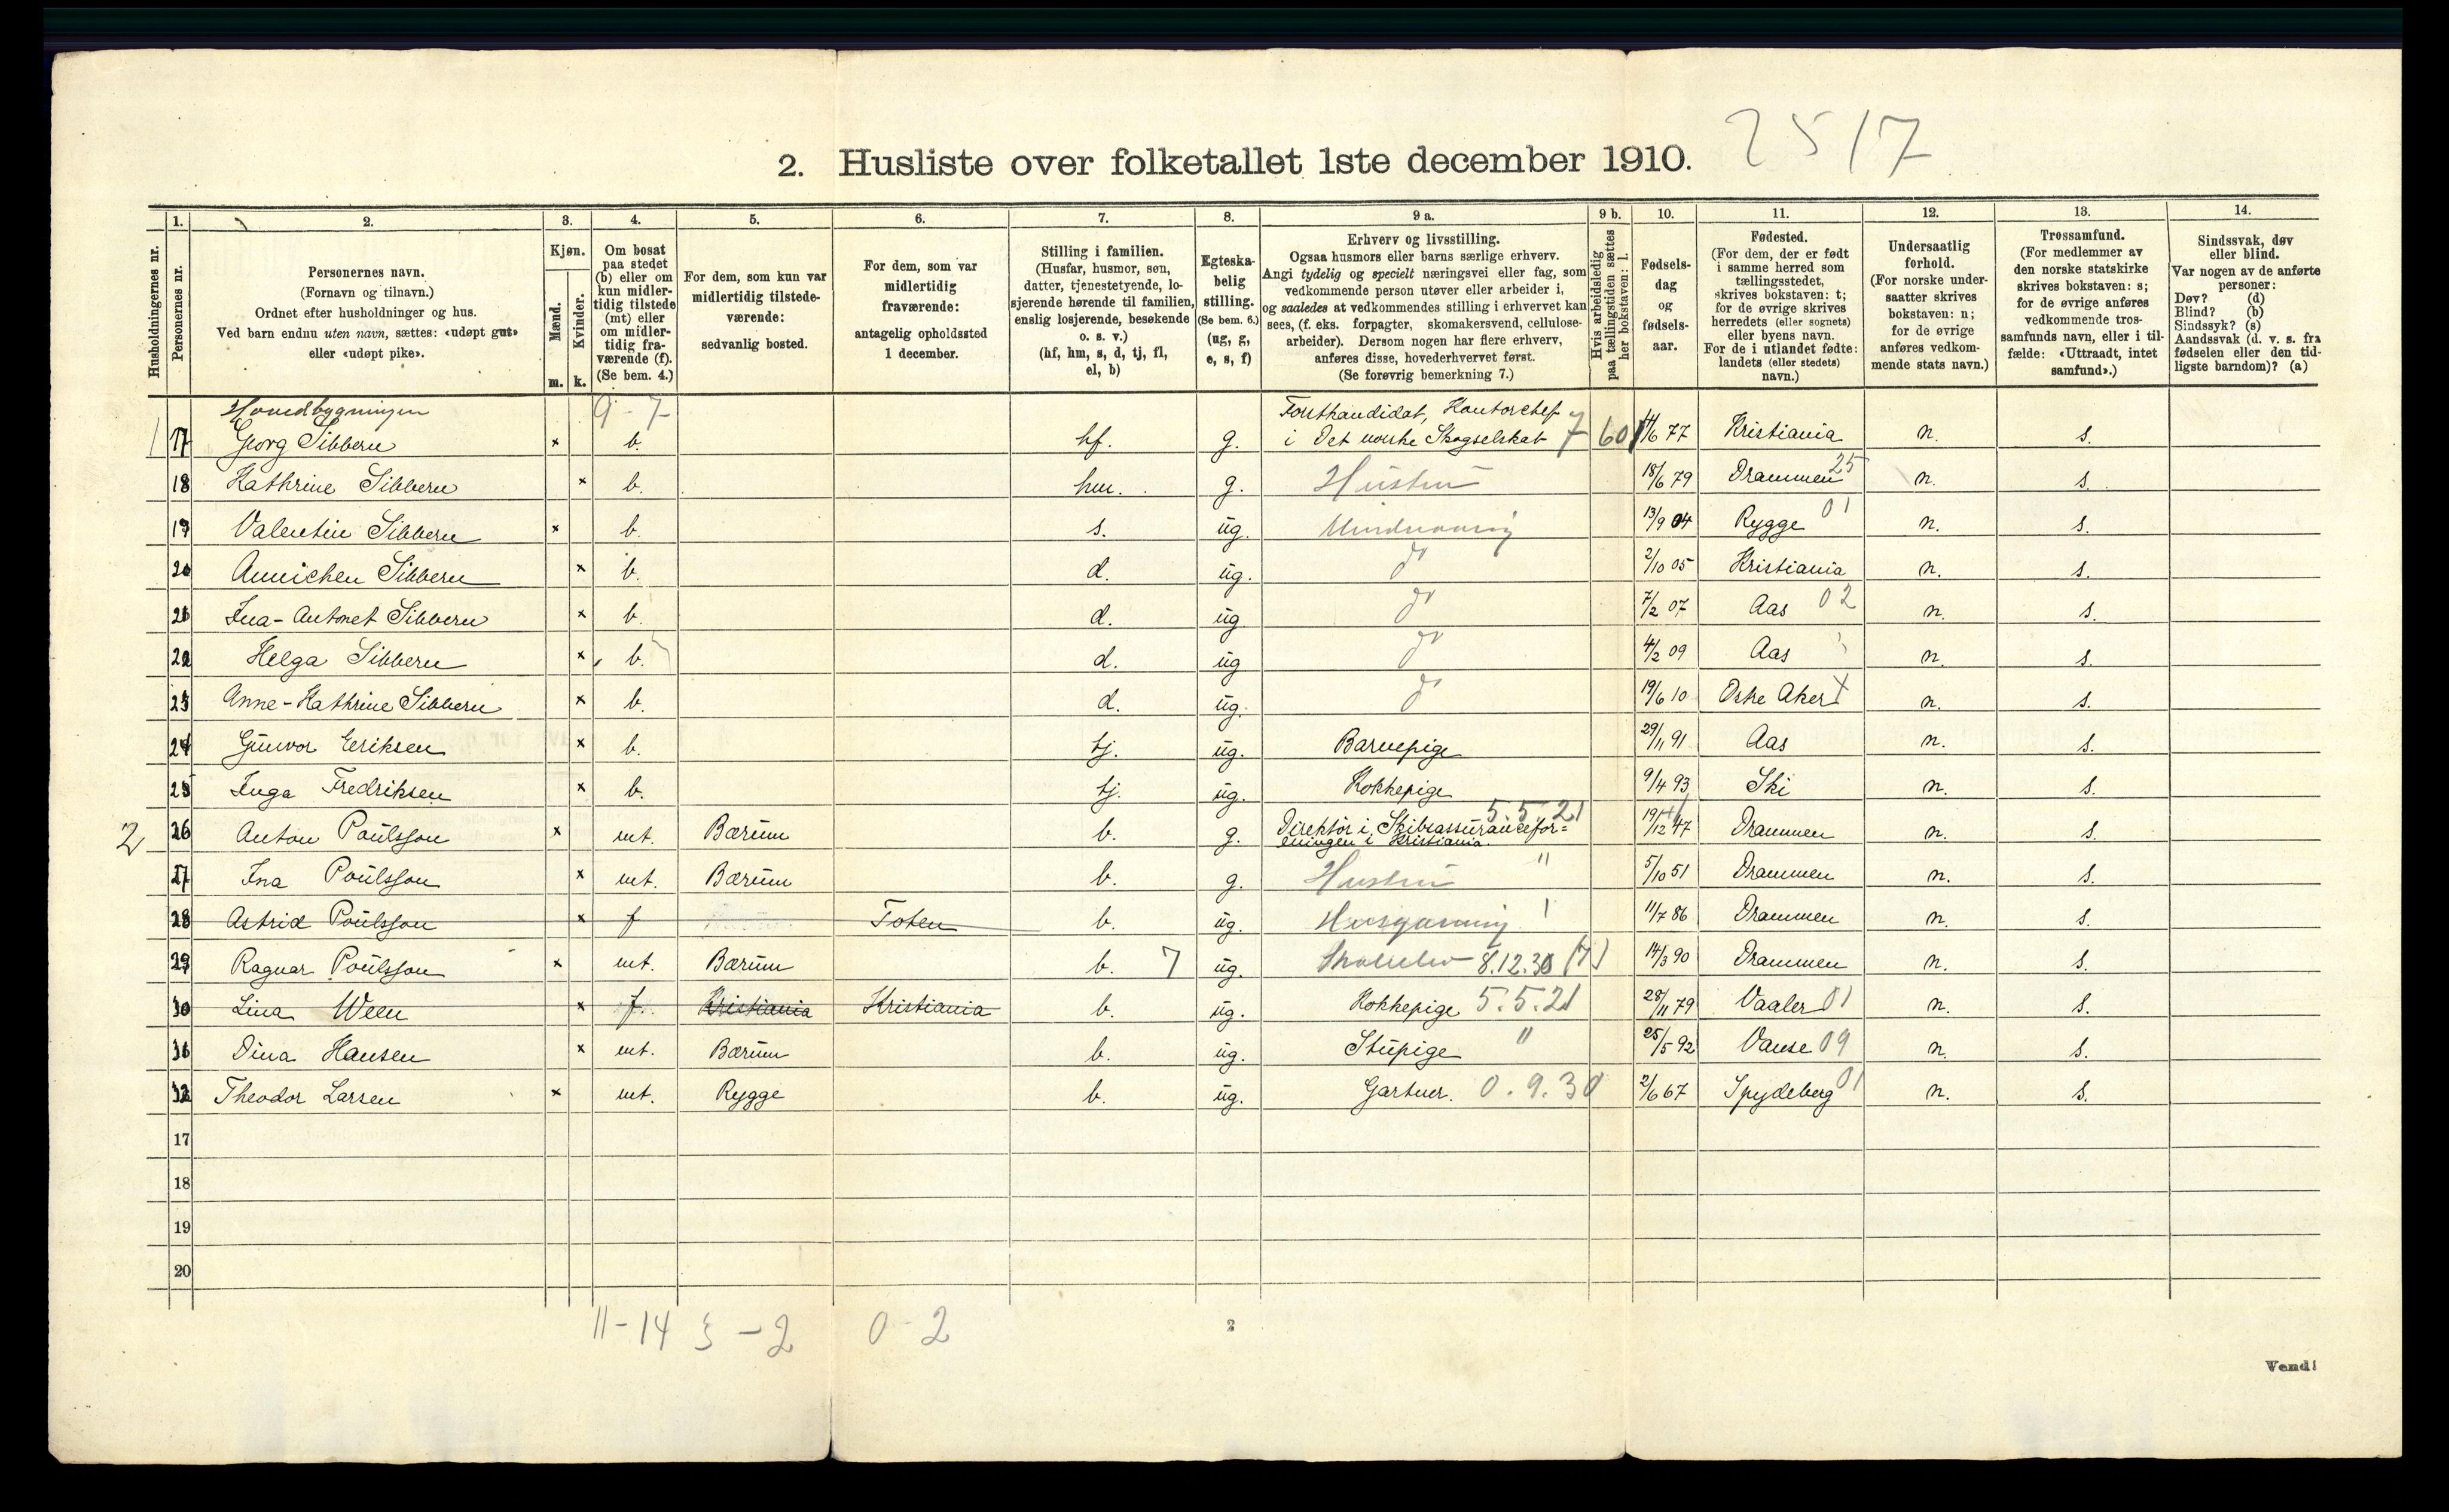 2. Husliste over folketallet 1ste december 1910. 2517
1. 2. 3. 4. 5. 6. 7. 8. 9 a. 9 b. 10. 11. 12. 13. 14.
Husholdningernes nr.
Personernes nr.
Personernes navn.
(Fornavn og tilnavn.)
Ordnet efter husholdninger og hus.
Ved barn endnu uten navn, sættes: «udøpt gut»
eller «udøpt pike».
Kjøn.
Mænd.
Kvinder.
m. k.
Om bosat
paa stedet
(b) eller om
kun midler-
tidig tilstede
(mt) eller
om midler-
tidig fra-
værende (f).
(Se bem. 4.)
For dem, som kun var
midlertidig tilstede-
værende:
sedvanlig bosted.
For dem, som var
midlertidig
fraværende:
antagelig opholdssted
1 december.
Stilling i familien.
(Husfar, husmor, søn,
datter, tjenestetyende, lo-
sjerende hørende til familien,
enslig losjerende, besøkende
o. s. v.)
(hf, hm, s, d, tj, fl,
el, b)
Egteska-
belig
stilling.
(Se bem. 6.)
(ug, g,
e, s, f)
Erhverv og livsstilling.
Ogsaa husmors eller barns særlige erhverv.
Angi tydelig og specielt næringsvei eller fag, som
vedkommende person utøver eller arbeider i,
og saaledes at vedkommendes stilling i erhvervet kan
sees, (f. eks. forpagter, skomakersvend, cellulose-
arbeider). Dersom nogen har flere erhverv,
anføres disse, hovederhvervet først.
(Se forøvrig bemerkning 7.)
Hvis arbeidsledig
paa tællingstiden sættes
her bokstaven: l.
Fødsels-
dag
og
fødsels-
aar.
Fødested.
(For dem, der er født
i samme herred som
tællingsstedet,
skrives bokstaven: t;
for de øvrige skrives
herredets (eller sognets)
eller byens navn.
For de i utlandet fødte:
landets (eller stedets)
navn.)
Undersaatlig
forhold.
(For norske under-
saatter skrives
bokstaven: n;
for de øvrige
anføres vedkom-
mende stats navn.)
Trossamfund.
(For medlemmer av
den norske statskirke
skrives bokstaven: s;
for de øvrige anføres
vedkommende tros-
samfunds navn, eller i til-
fælde: «Uttraadt, intet
samfund».)
Sindssvak, døv
eller blind.
Var nogen av de anførte
personer:
Døv? (d)
Blind? (b)
Sindssyk? (s)
Aandssvak (d. v. s. fra
fødselen eller den tid-
ligste barndom)? (a)
Hovedbygningen 9-7 Forstkandidat, Kontorchef
1 17 Georg Sibbern x b. hf. g. i Det norske Skogselskab 7 60 /6 77 Kristiania n. s.
18 Kathrine Sibbern x b. hm. g. Hustru 18/6 79 Drammen 25 n. s.
19 Valentin Sibbern x b. s. ug. 13/9 04 Rygge 01 n. s.
20 Annichen Sibbern x b. d. ug. do 2/10 05 Kristiania n. s.
21 Ina-Antonet Sibbern x b. d. ug do 7/2 07 Aas 02 n. s.
22 Helga Sibbern x b. d. ug do 4/2 09 Aas n. s.
23 Anne-Kathrine Sibbern x b. d. ug. do 19/6 10 Østre Aker n. s.
24 Gunvor Eriksen x b. tj. ug. Barnepige 29/11 91 Aas n. s.
25 Inga Fredriksen x b. tj. ug. Kokkepige 9/4 93 Ski n. s.
5.5.21
2 26 Anton Poulsson x mt. Bærum b. g. Direktør i Skibsassurancefor=
eningen i Kristiania. 19/12 47 Drammen n. s.
27 Ina Poulsson x mt. Bærum b. g. Hustru " 5/10 51 Drammen n. s.
28 Astrid Poulsson x f Toten b. ug. Husgjerning 11/7 86 Drammen n. s.
29 Ragnar Poulsson x mt. Bærum b. 7 ug. 8.12.30 (7) 14/3 90 Drammen n. s.
30 Lina Ween x f. Kristiania Kristiania b. ug. Kokkepige 5.5.21 28/11 79 Vaaler 01 n. s.
31 Dina Hansen x mt. Bærum b. ug. Stupige " 25/5 92 Vanse 09 n. s.
32 Theodor Larsen x mt. Rygge b. ug. Gartner. 0.9.30 2/6 67 Spydeberg 01 n. s.
17
18
19
20
11-14 3-2 0-2
2
Vend!